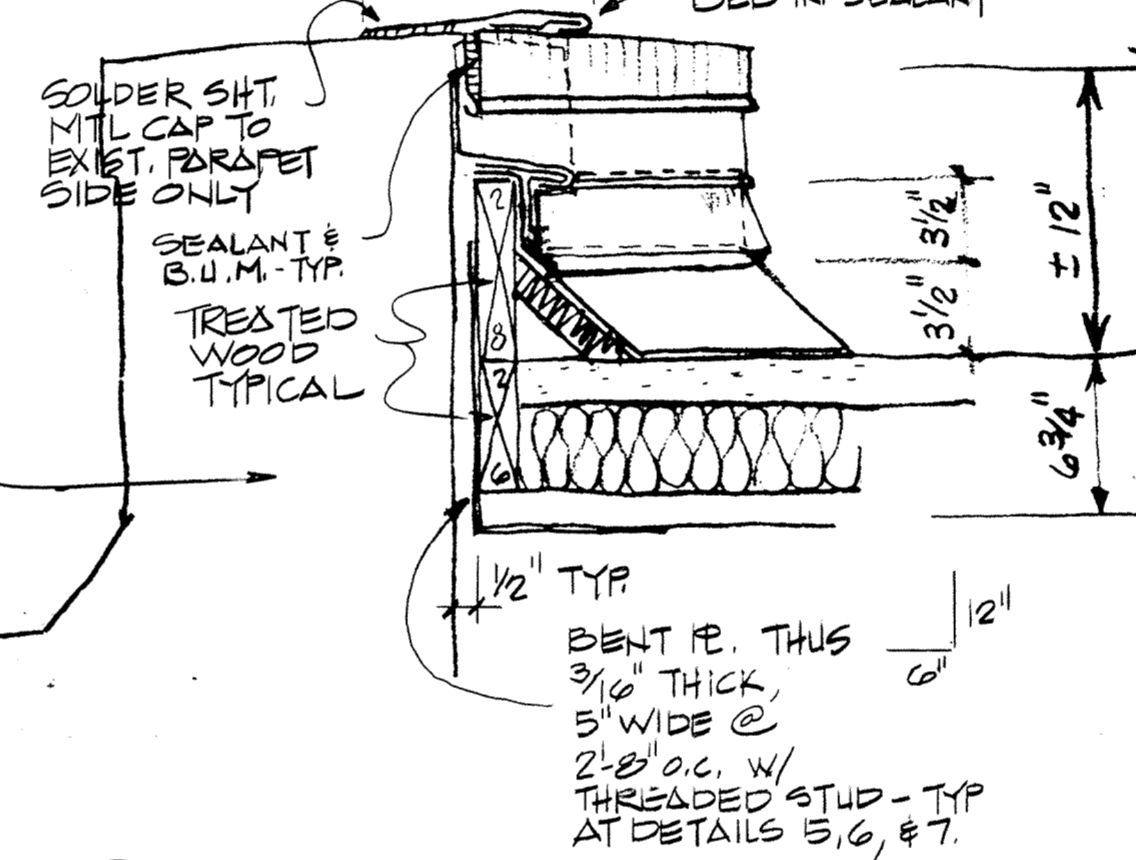 BED IN SEALANT
SOLDER SHT.
MTL CAP TO
EXIST. PARAPET
SIDE ONLY
SEALANT &
B.U.M.-TYP.
TREATED
WOOD
TYPICAL
2
8
2
6
3 1/2"
3 1/2"
± 12"
6 3/4"
1/2" TYP.
BENT PL. THUS
3/16" THICK,
5" WIDE @
2'-8" O.C. W/
THREADED STUD - TYP
AT DETAILS 5, 6, & 7.
12"
6"